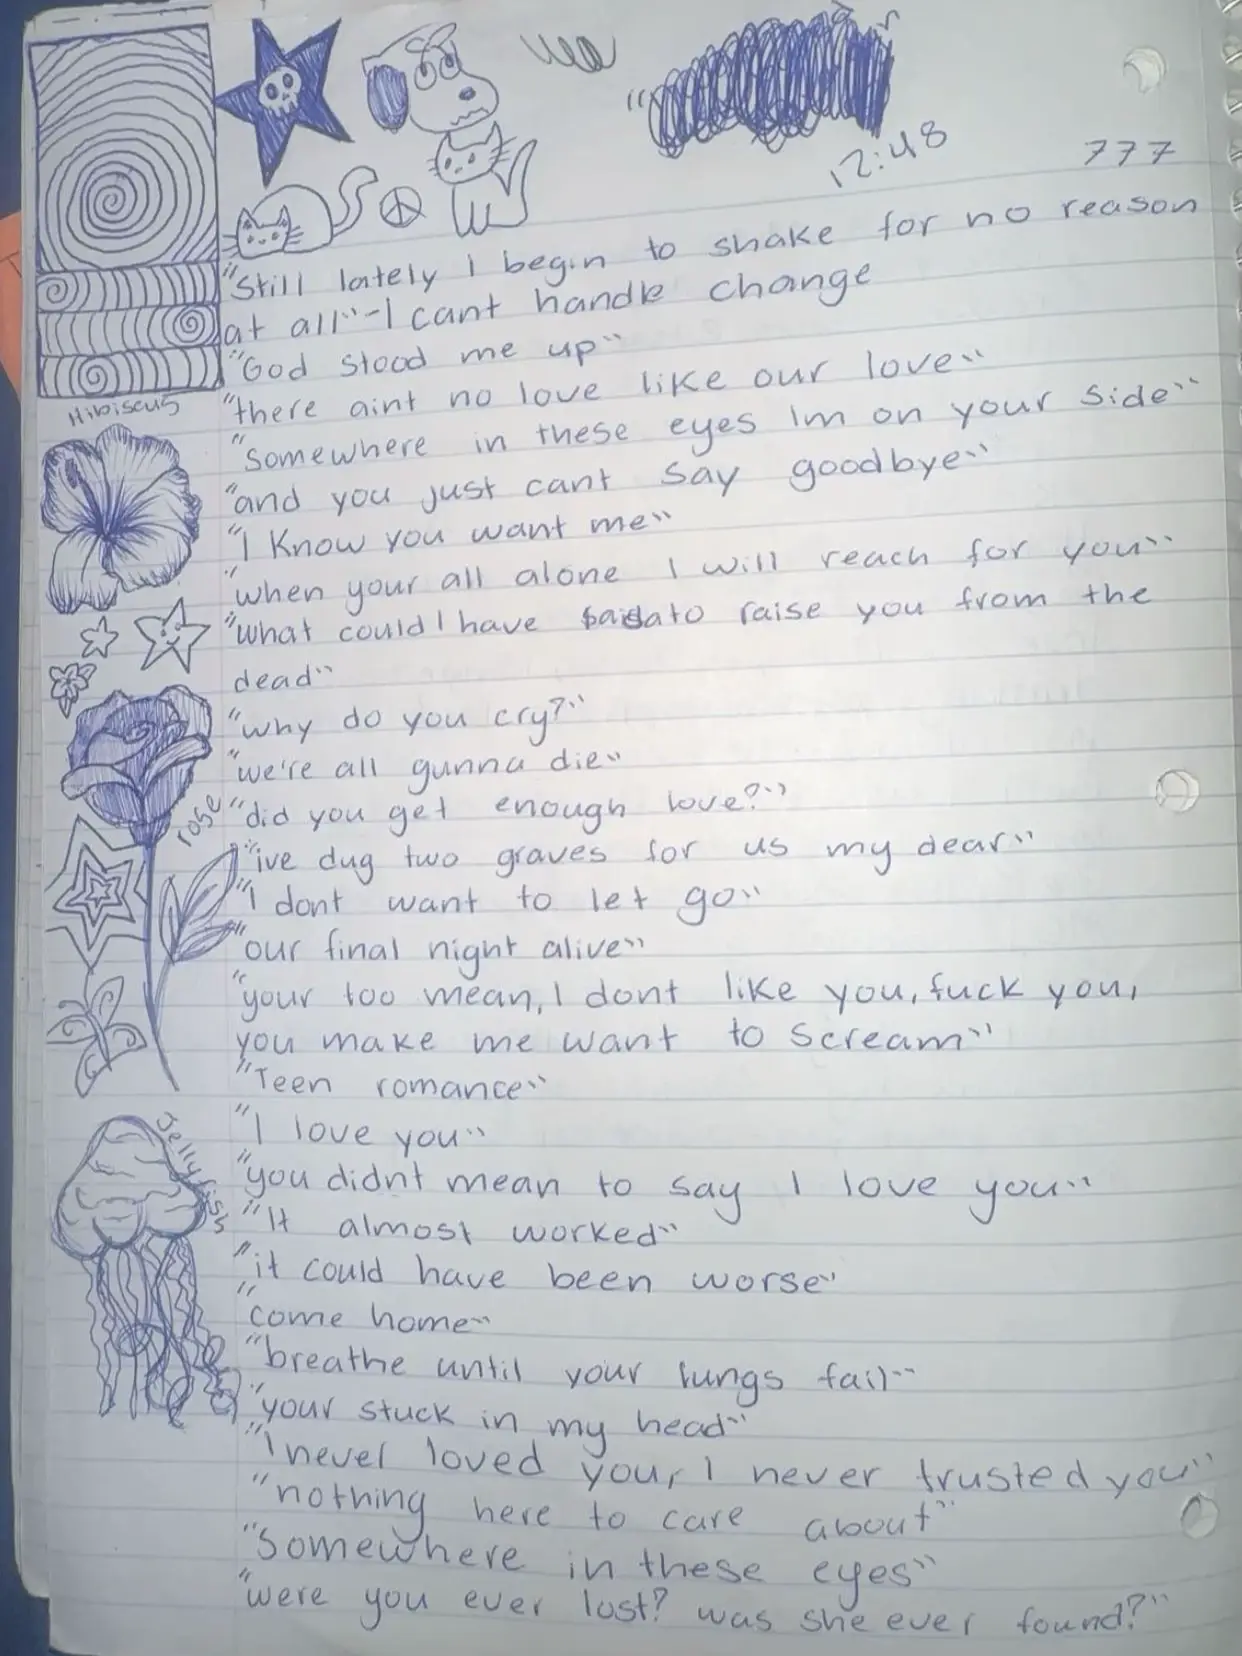 12:48
777
"Still lately I begin to shake for no reason
at all" - I cant handle change
"God stood me up"
Hibiscus
"there aint no love like our love"
"Somewhere in these eyes Im on your side"
"and you just cant say goodbye"
"I Know you want me"
"when your all alone I will reach for you"
"what could I have to raise you from the
dead"
"why do you cry?"
"we're all gunna die"
rose
"did you get enough love?"
"ive dug two graves for us my dear"
"I dont want to let go"
"our final night alive"
"your too mean, I dont like you, fuck you,
you make me want to scream"
"Teen romance"
"I love you"
"you didnt mean to say I love you"
"It almost worked"
"it could have been worse"
"come home"
"breathe until your lungs fail"
"your stuck in my head"
"I never loved you, I never trusted you"
"nothing here to care about"
"Somewhere in these eyes"
"were you ever lost? was she ever found?"